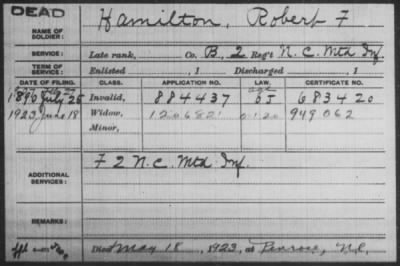 DEAD
NAME OF SOLDIER: Hamilton, Robert F
SERVICE: Late rank, Co. B, 2 Reg't N.C. Mtd Inf.
TERM OF SERVICE: Enlisted , 1 Discharged , 1
DATE OF FILING. CLASS. APPLICATION NO. LAW. CERTIFICATE NO.
1890 July 25 Invalid, 884437 683420
1923 June 18 Widow, 1206821 949062
Minor,
ADDITIONAL SERVICES: F 2 N.C. Mtd Inf.
REMARKS:
Died May 18, 1923, at Penrose, N.C.